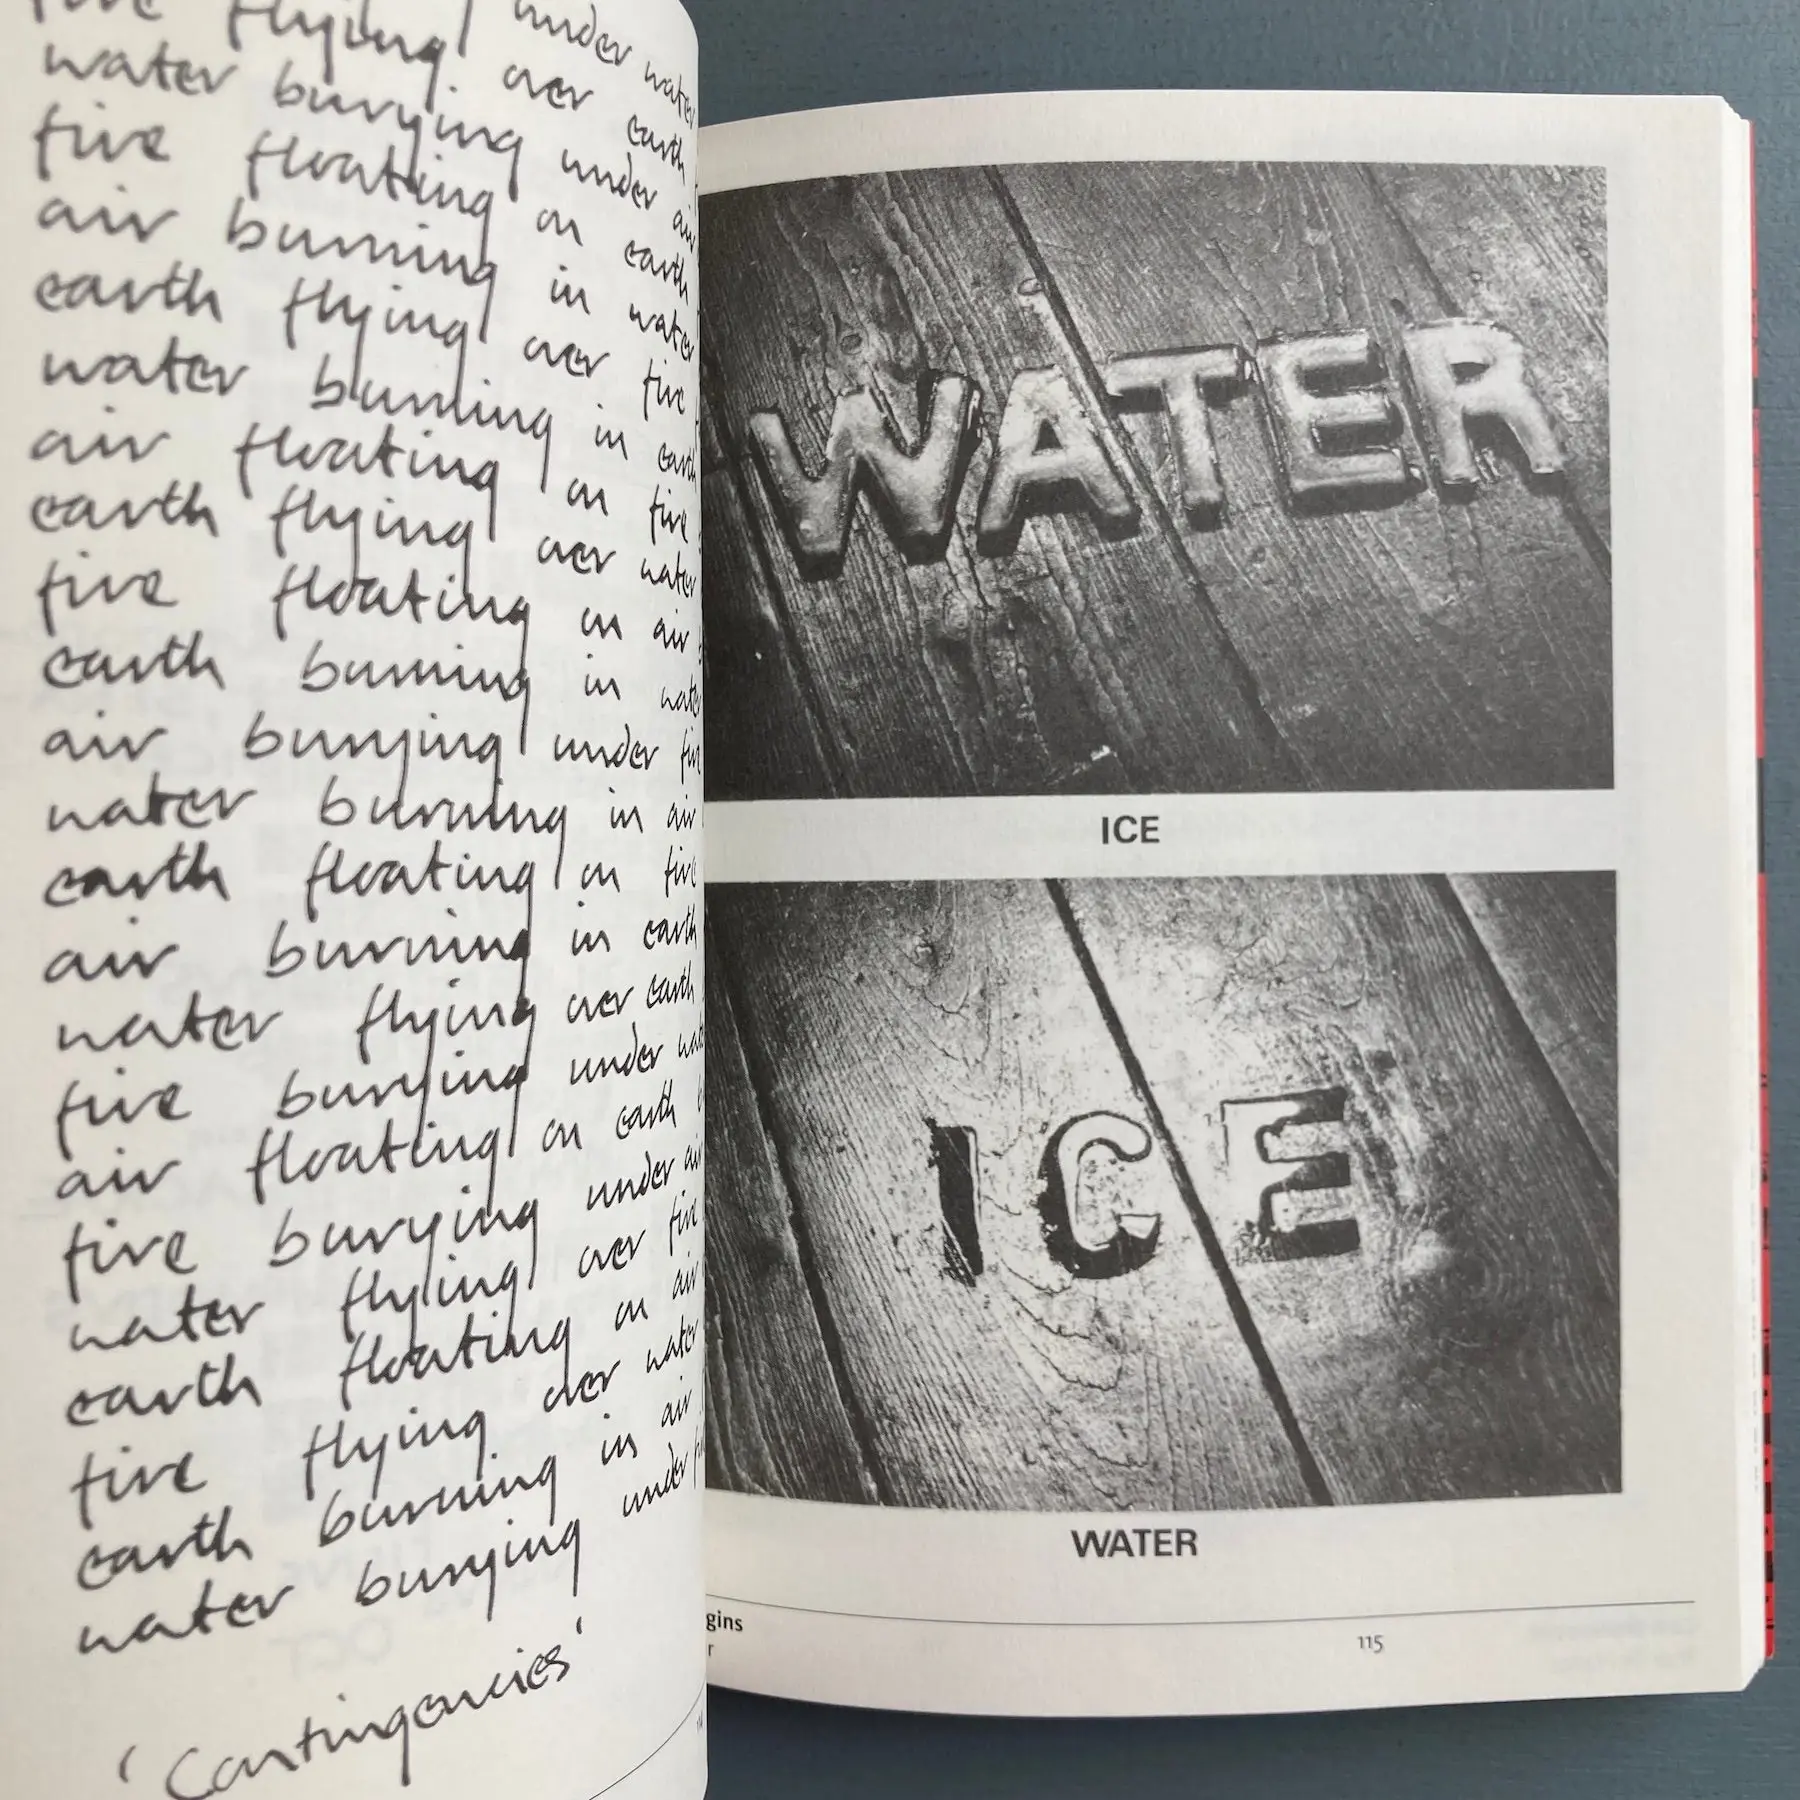 under water
fire flying over earth
water burying under air
fire floating on earth
air burning in water
earth flying over fire
water burning in earth
air floating on fire
earth flying over water
fire floating on air
earth burning in water
air burying under fire
water burning in air
earth floating on fire
air burning in earth
water flying over earth
fire burying under water
air floating on earth
fire burying under air
water flying over fire
earth floating on air
fire flying over water
earth burning in air
water burying under
'Contingencies'
WATER
ICE
ICE
WATER
gins
r
115